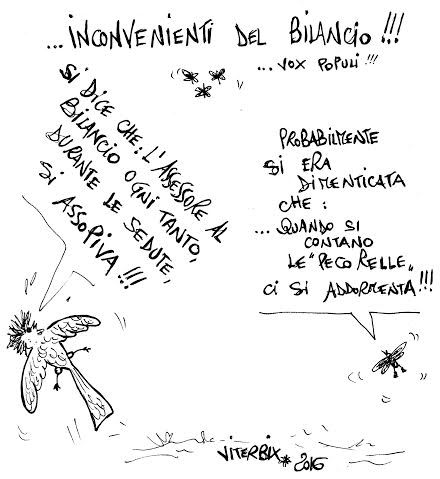 ...INCONVENIENTI DEL BILANCIO!!!
...VOX POPULI!!!
SI DICE CHE: L'ASSESSORE AL
BILANCIO OGNI TANTO,
DURANTE LE SEDUTE,
SI ASSOPIVA!!!
PROBABILMENTE
SI ERA
DIMENTICATA
CHE:
...QUANDO SI
CONTANO
LE "PECORELLE"
CI SI ADDORMENTA!!!
VITERBIX 2016